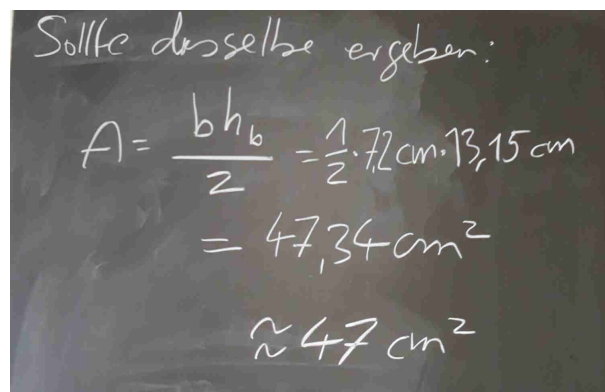 Sollte dasselbe ergeben:
A = bh_b/2 = 1/2 · 7,2 cm · 13,15 cm
= 47,34 cm²
≈ 47 cm²